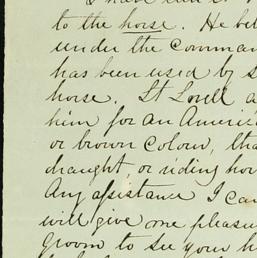 to the horse. He bel
under the comman
has been used by s
horse. Lt Lovell a
him for an America
or brown colour, tha
draught, or riding hor
Any assistance I can
will give me pleasu
Groom to see your h